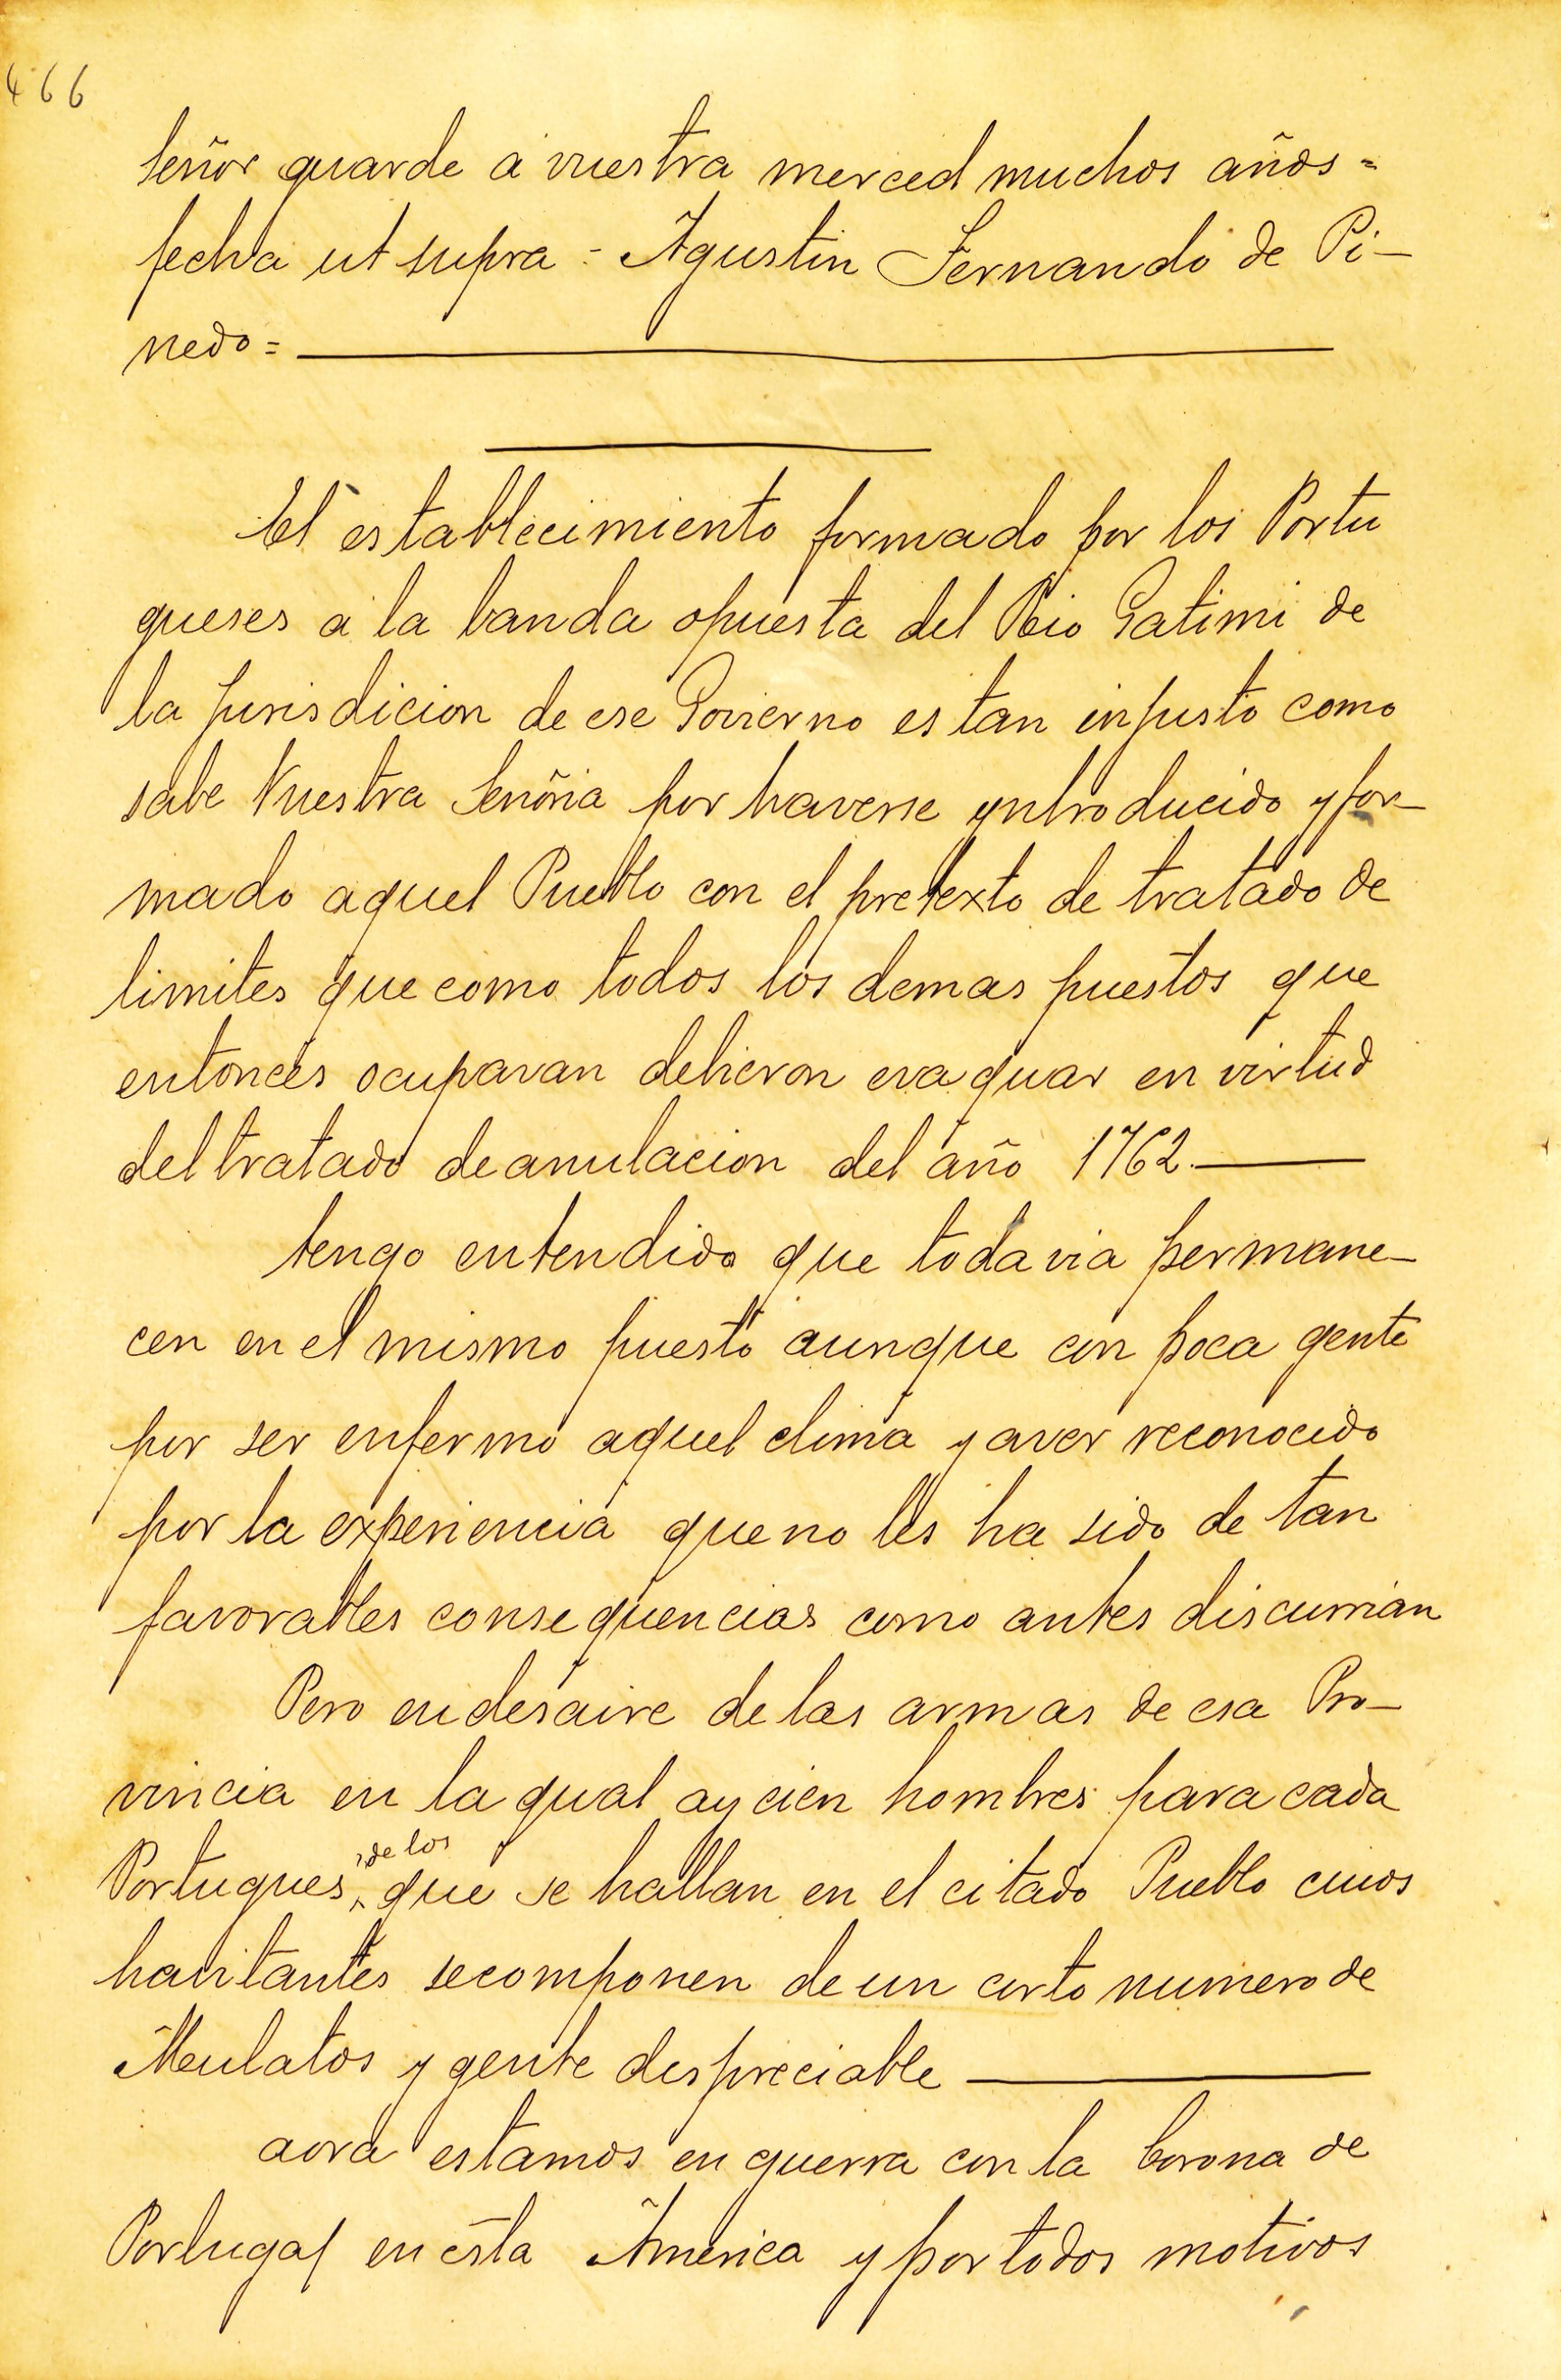 466
Señor guarde a vuestra merced muchos años =
fecha ut supra - Agustin Fernando de Pi-
nedo =
El establecimiento formado por los Portu
gueses a la banda opuesta del Rio Gatimi de
la Jurisdicion de ese Govierno es tan injusto como
sabe Vuestra Señoria por haverse yntroducido y for-
mado aquel Pueblo con el pretexto de tratado de
limites que como todos los demas puestos que
entonces ocupavan devieron evaquar en virtud
del tratado de anulacion del año 1762.
tengo entendido que todavia permane-
cen en el mismo puesto aunque con poca gente
por ser enfermo aquel clima y aver reconocido
por la experiencia que no les ha sido de tan
favorables consequencias como antes discurrian
Pero en desaire de las armas de esa Pro-
vincia en la qual ay cien hombres para cada
Portugues, de los que se hallan en el citado Pueblo cuios
havitantes se componen de un corto numero de
Mulatos y gente despreciable
aora estamos en guerra con la Corona de
Portugal en esta America y por todos motivos